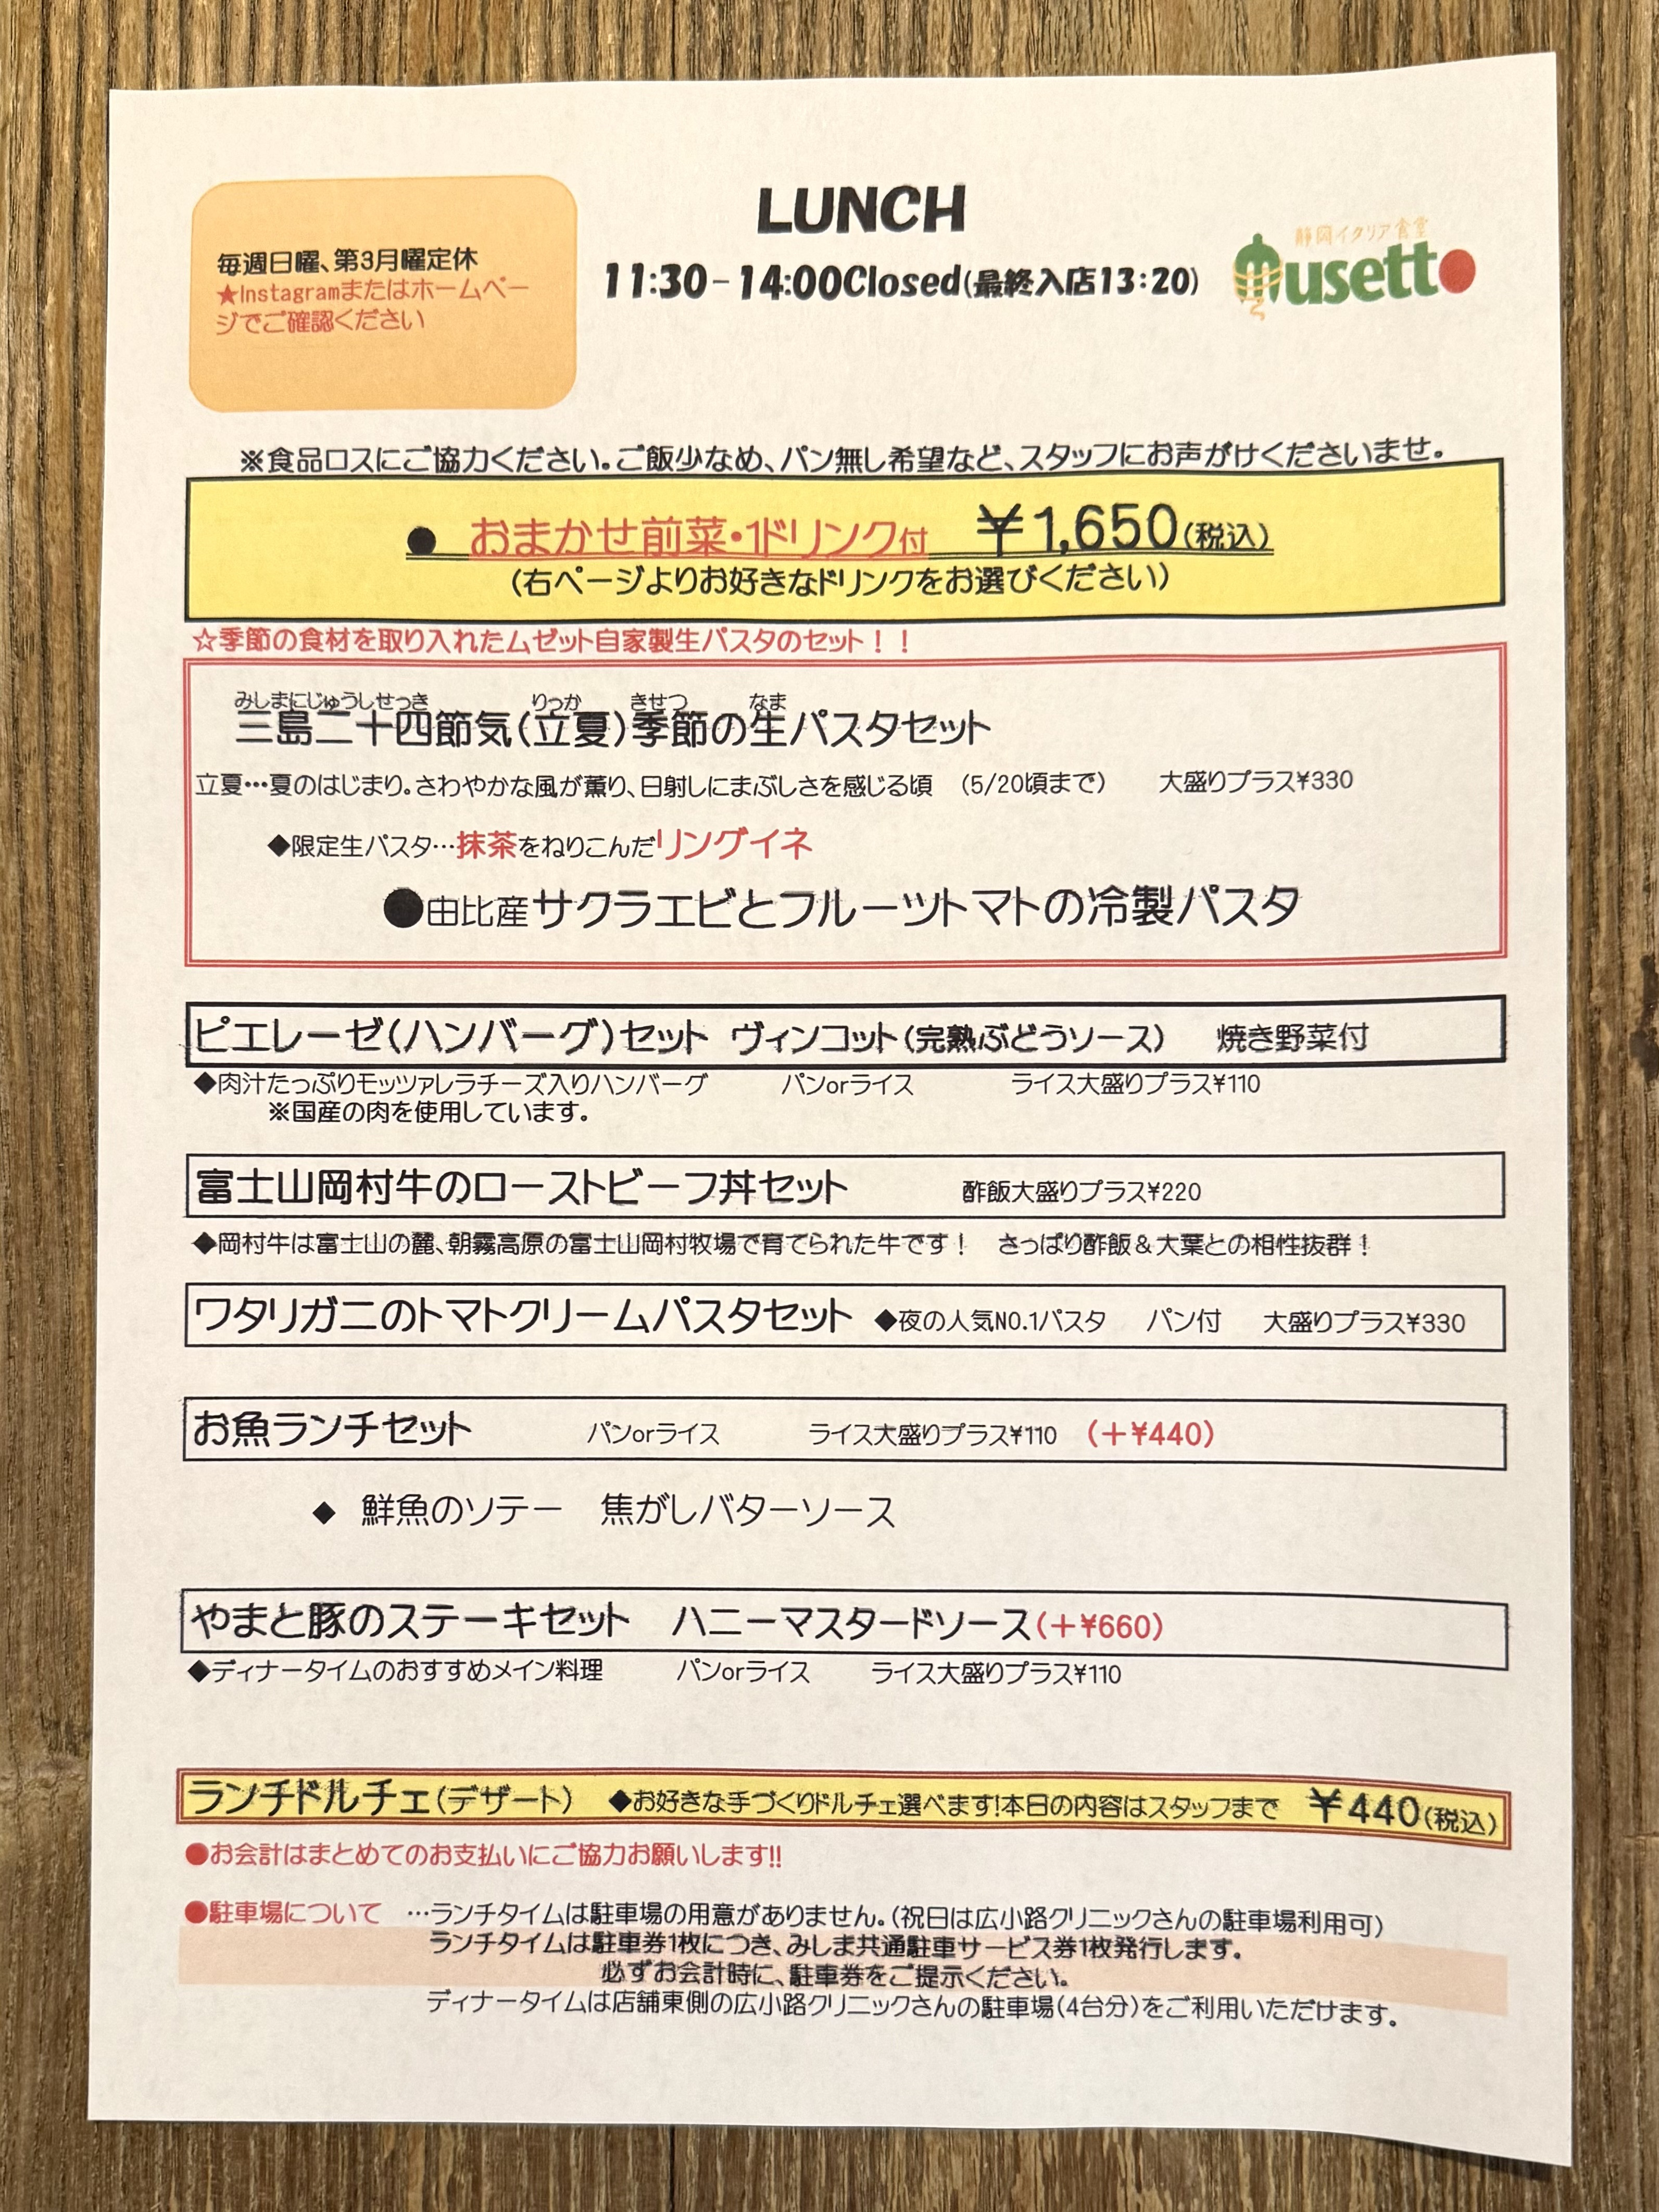 LUNCH
11:30-14:00Closed(最終入店13:20)
静岡イタリア食堂
musetto
毎週日曜、第3月曜定休
★Instagramまたはホームペー
ジでご確認ください
※食品ロスにご協力ください。ご飯少なめ、パン無し希望など、スタッフにお声がけくださいませ。
● おまかせ前菜・1ドリンク付 ￥1,650(税込)
(右ページよりお好きなドリンクをお選びください)
☆季節の食材を取り入れたムゼット自家製生パスタのセット！！
みしまにじゅうしせっき りっか きせつ なま
三島二十四節気(立夏)季節の生パスタセット
立夏…夏のはじまり。さわやかな風が薫り、日射しにまぶしさを感じる頃 (5/20頃まで) 大盛りプラス¥330
◆限定生パスタ…抹茶をねりこんだリングイネ
●由比産サクラエビとフルーツトマトの冷製パスタ
ピエレーゼ(ハンバーグ)セット ヴィンコット(完熟ぶどうソース) 焼き野菜付
◆肉汁たっぷりモッツァレラチーズ入りハンバーグ パンorライス ライス大盛りプラス¥110
※国産の肉を使用しています。
富士山岡村牛のローストビーフ丼セット 酢飯大盛りプラス¥220
◆岡村牛は富士山の麓、朝霧高原の富士山岡村牧場で育てられた牛です！ さっぱり酢飯＆大葉との相性抜群！
ワタリガニのトマトクリームパスタセット ◆夜の人気NO.1パスタ パン付 大盛りプラス¥330
お魚ランチセット パンorライス ライス大盛りプラス¥110 (+¥440)
◆ 鮮魚のソテー 焦がしバターソース
やまと豚のステーキセット ハニーマスタードソース(+¥660)
◆ディナータイムのおすすめメイン料理 パンorライス ライス大盛りプラス¥110
ランチドルチェ(デザート) ◆お好きな手づくりドルチェ選べます!本日の内容はスタッフまで ￥440(税込)
●お会計はまとめてのお支払いにご協力お願いします!!
●駐車場について …ランチタイムは駐車場の用意がありません。(祝日は広小路クリニックさんの駐車場利用可)
ランチタイムは駐車券1枚につき、みしま共通駐車サービス券1枚発行します。
必ずお会計時に、駐車券をご提示ください。
ディナータイムは店舗東側の広小路クリニックさんの駐車場(4台分)をご利用いただけます。